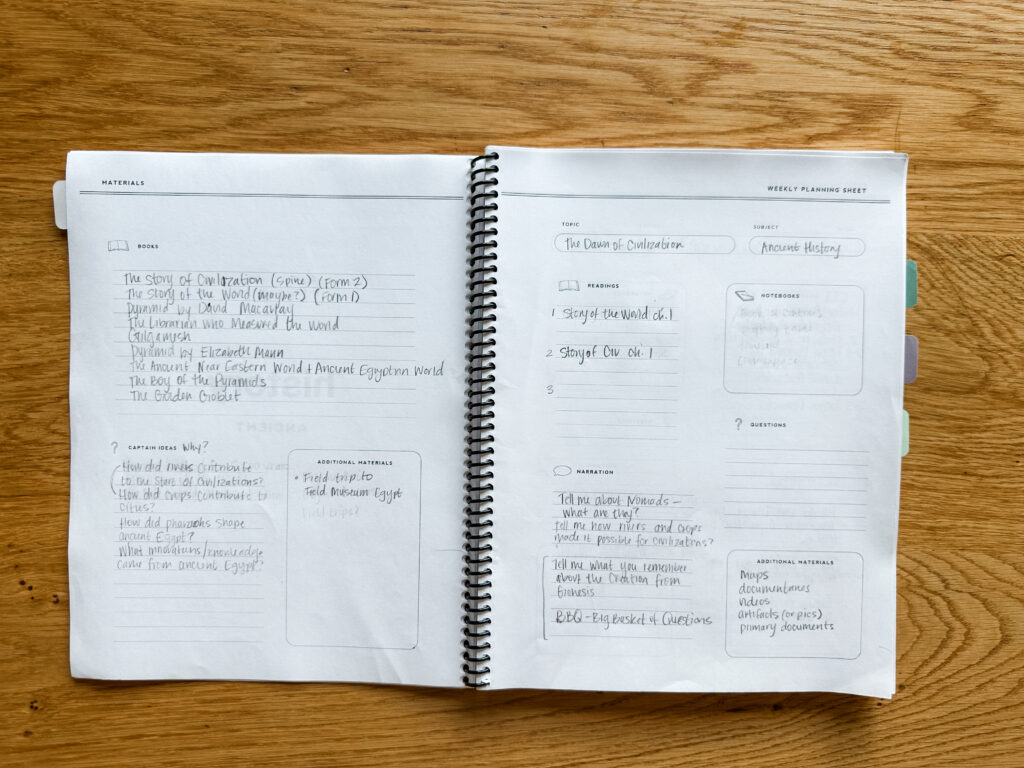 MATERIALS
BOOKS
The Story of Civilization (Spine) (Form 2)
The Story of the World (maybe?) (Form 1)
Pyramid by David Macaulay
The Librarian who Measured the World
Gilgamesh
Pyramid by Elizabeth Mann
The Ancient Near Eastern World + Ancient Egyptian World
The Boy of the Pyramids
The Golden Goblet
? CAPTAIN IDEAS Why?
How did rivers contribute
to the start of Civilizations?
How did crops contribute to
cities?
How did pharaohs shape
ancient Egypt?
What innovations/knowledge
came from ancient Egypt?
ADDITIONAL MATERIALS
• Field trip to
Field Museum Egypt
Field trips?
WEEKLY PLANNING SHEET
TOPIC
The Dawn of Civilization
SUBJECT
Ancient History
READINGS
1 Story of the World ch. 1
2 Story of Civ ch. 1
3
NARRATION
Tell me about Nomads –
what are they?
Tell me how rivers and crops
made it possible for civilizations?
Tell me what you remember
about the Creation from
Genesis
BBQ – Big Basket of Questions
NOTEBOOKS
Book of Centuries
? QUESTIONS
ADDITIONAL MATERIALS
maps
documentaries
videos
artifacts (or pics)
primary documents